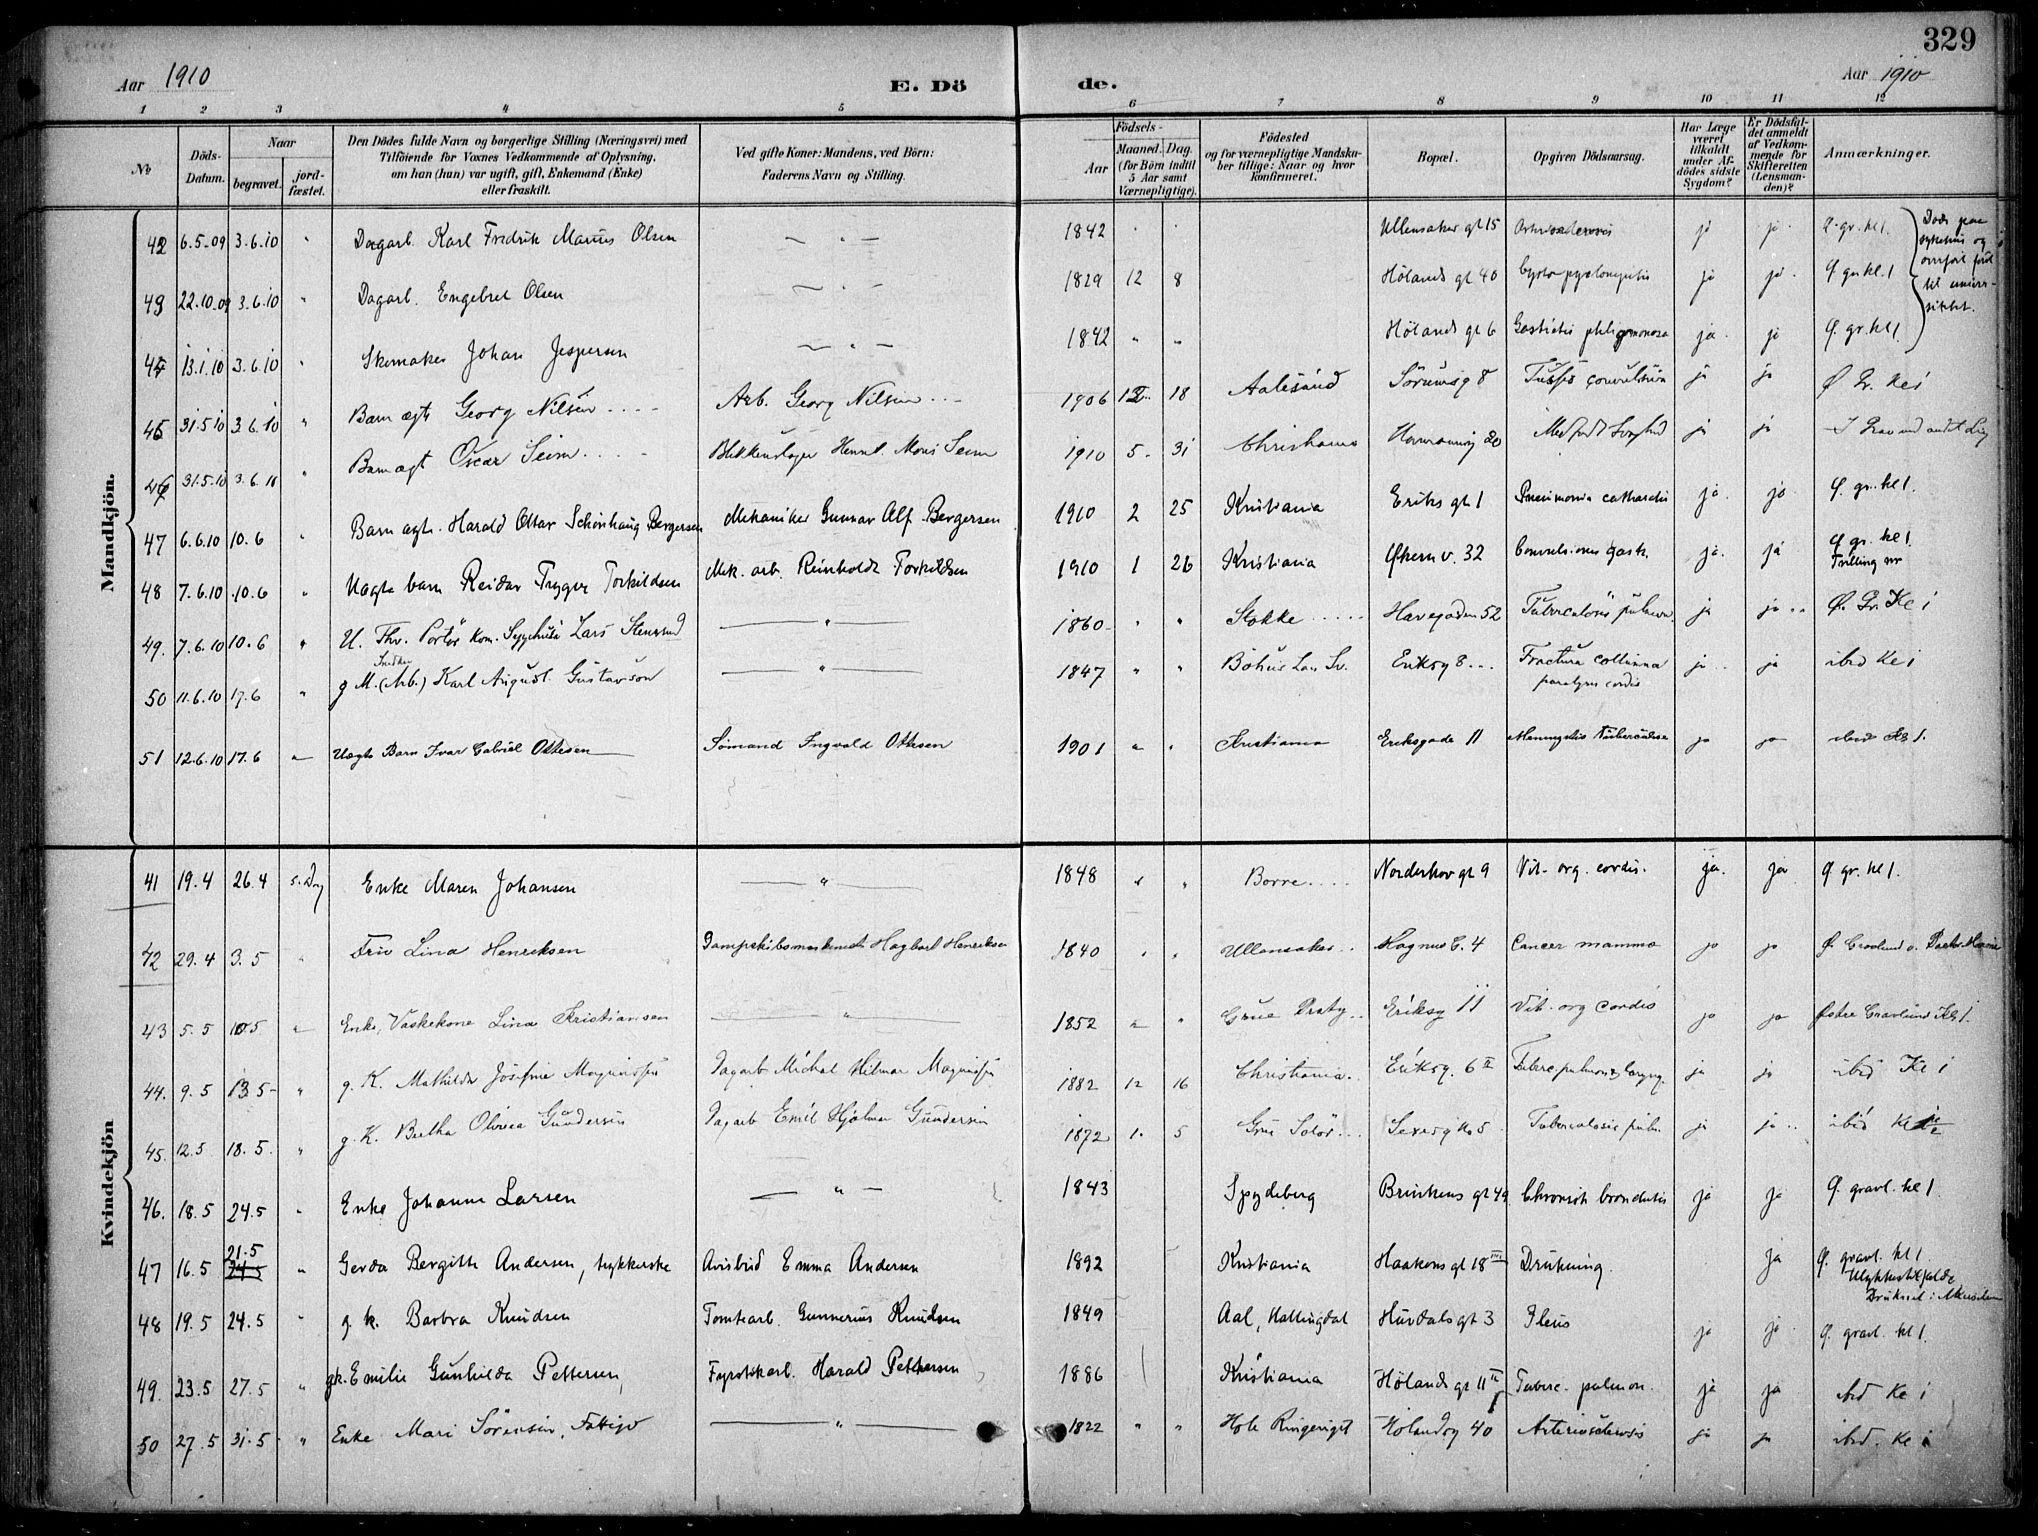 329
Aar 1910 E. Dö de. Aar 1910
1 2 3 4 5 6 7 8 9 10 11 12
No
Döds-Datum.
Naar begravet. jord-fæstet.
Den Dödes fulde Navn og borgerlige Stilling (Næringsvei) med Tilföiende for Voxnes Vedkommende af Oplysning, om han (hun) var ugift, gift, Enkemand (Enke) eller fraskilt.
Ved gifte Koner: Mandens, ved Börn: Faderens Navn og Stilling.
Födsels- Aar Maaned. Dag. (for Börn indtil 5 Aar samt Værnepligtige).
Födested og for værnepligtige Mandskaber tillige: Naar og hvor konfirmeret.
Bopæl.
Opgiven Dödsaarsag.
Har Læge været tilkaldt under Afdödes sidste Sygdom?
Er Dödsfaldet anmeldt af Vedkommende for Skifteretten (Lensmanden)?
Anmærkninger.
Mandkjön.
42 6.5.09 3.6.10 " Dagarb. Karl Fredrik Marius Olsen — " — 1842 " " Ullensaker gt 15 ja ja Ø. gr. kl 1.
43 22.10.09 3.6.10 " Dagarb. Engebret Olsen — " — 1829 12 8 Hölands gt 40 ja ja Ø gr. kl. 1
44 13.1.10 3.6.10 " Skomaker Johan Jespersen — " — 1842 " " Hölands gt 6 ja ja Ø. gr. kl 1
Döde paa sykehus og til universitetet.
45 31.5.10 3.6.10 " Barn ægte Georg Nilsen Arb. Georg Nilsen 1906 12 18 Aalesund Sörumsg 8 Tussis convulsiva ja ja Ø Gr. Kl 1
46 31.5.10 3.6.10 " Barn ægt Oscar Seim Blikkenslager Seim 1910 5 31 Christiania 20 ja ja I Grav med andet Lig
47 6.6.10 10.6 " Barn ægte. Harald Ottar Schönhaug Bergersen Mekaniker Gunnar Alf Bergersen 1910 2 25 Kristiania Eriks gt 1 Pneumonia catharalis ja ja Ø. gr. kl 1.
48 7.6.10 10.6 " Uægte barn Reidar Trygve Torkildsen Mek. arb. Reinholdt Torkildsen 1910 1 26 Kristiania Økern v. 32 Convulsiones ja ja Ø gr. kl 1. Tvilling
49. 7.6.10 10.6 " U. Thv. Portör Kom. Sygehuse Lars Stensrud — " — 1860 " " Stokke Havegaden 52 Tuberculosis pulmon. ja ja Ø. Gr. Kl 1
50 11.6.10 17.6 " g M. (Arb.) Snedker Karl August Gustavson — " — 1847 " " Bohus Len Sv. Eriksg 8 Fractura paralysis cordis ja ja ibid Kl 1
51 12.6.10 17.6 " Uægte Barn Ivar Gabriel Ottesen Sömand Ingvald Ottesen 1901 " " Kristiania Eriksgade 11 Meningitis Tuberculosa ja ja ibid Kl 1.
Kvindekjön
41 19.4 26.4 s. Dag Enke Maren Johansen — " — 1848 " " Borre Norderhov gt 9 Vit. org. cordis. ja. ja Ø gr. kl 1.
42 29.4 3.5 " Fru Lina Henriksen Dampskibsmaskinist Hagbart Henriksen 1840 " " Ullensaker Magnus G. 4 Cancer mamma ja ja Ø Gravlund
43 5.5 10.5 " Enke, Vaskekone Lina Kristiansen — " — 1852 " " Grue Eriksg 11 Vit. org cordis ja ja Østre Gravlund Kl 1.
44. 9.5 13.5 " g. K. Mathilde Josefine Magnussen Dagarb Michal Hilmar Magnussen 1882 12 16 Christiania Eriksg. 6 II Tuberc. pulmon & laryng. ja ja ibid Kl 1
45. 12.5 18.5 " g. K. Bertha Olivia Gundersen Dagarb Emil Hjalmar Gundersen 1872 1. 5 Grue Solör Tuberculosis pulm. ja ja ibid Kl
46. 18.5 24.5 " Enke Johanne Larsen — " — 1843 Spydeberg Brinkens gt 49 Chronisk bronchitis ja ja Ø. gravl. kl 1.
47 16.5 21.5 24.5 " Gerda Bergitte Andersen, trykkerske Avisbud Emma Andersen 1892 Kristiania Haakons gt 18 III Drukning. ja Ø. gravl. kl 1 Ulykkestilfælde
48 19.5 24.5 " g. k. Barbra Knudsen Tomtearb. Gunnerius Knudsen 1849 Aal, Hallingdal Hurdals gt 3 Ileus ja ja Ø. gravl. kl 1.
49. 23.5 27.5 " gk. Emilie Gunhilda Pettersen, Fyrstikarb. Harald Pettersen 1886 Kristiania Hölands gt 11 II Tuberc. pulmon. ja ja ibid Kl 1
50 27.5 31.5 " Enke Mari Sörensen, — " — 1822 " " Hole Ringeriget Hölandsg 40 Arteriosclerosis ja ja ibid. Kl 1